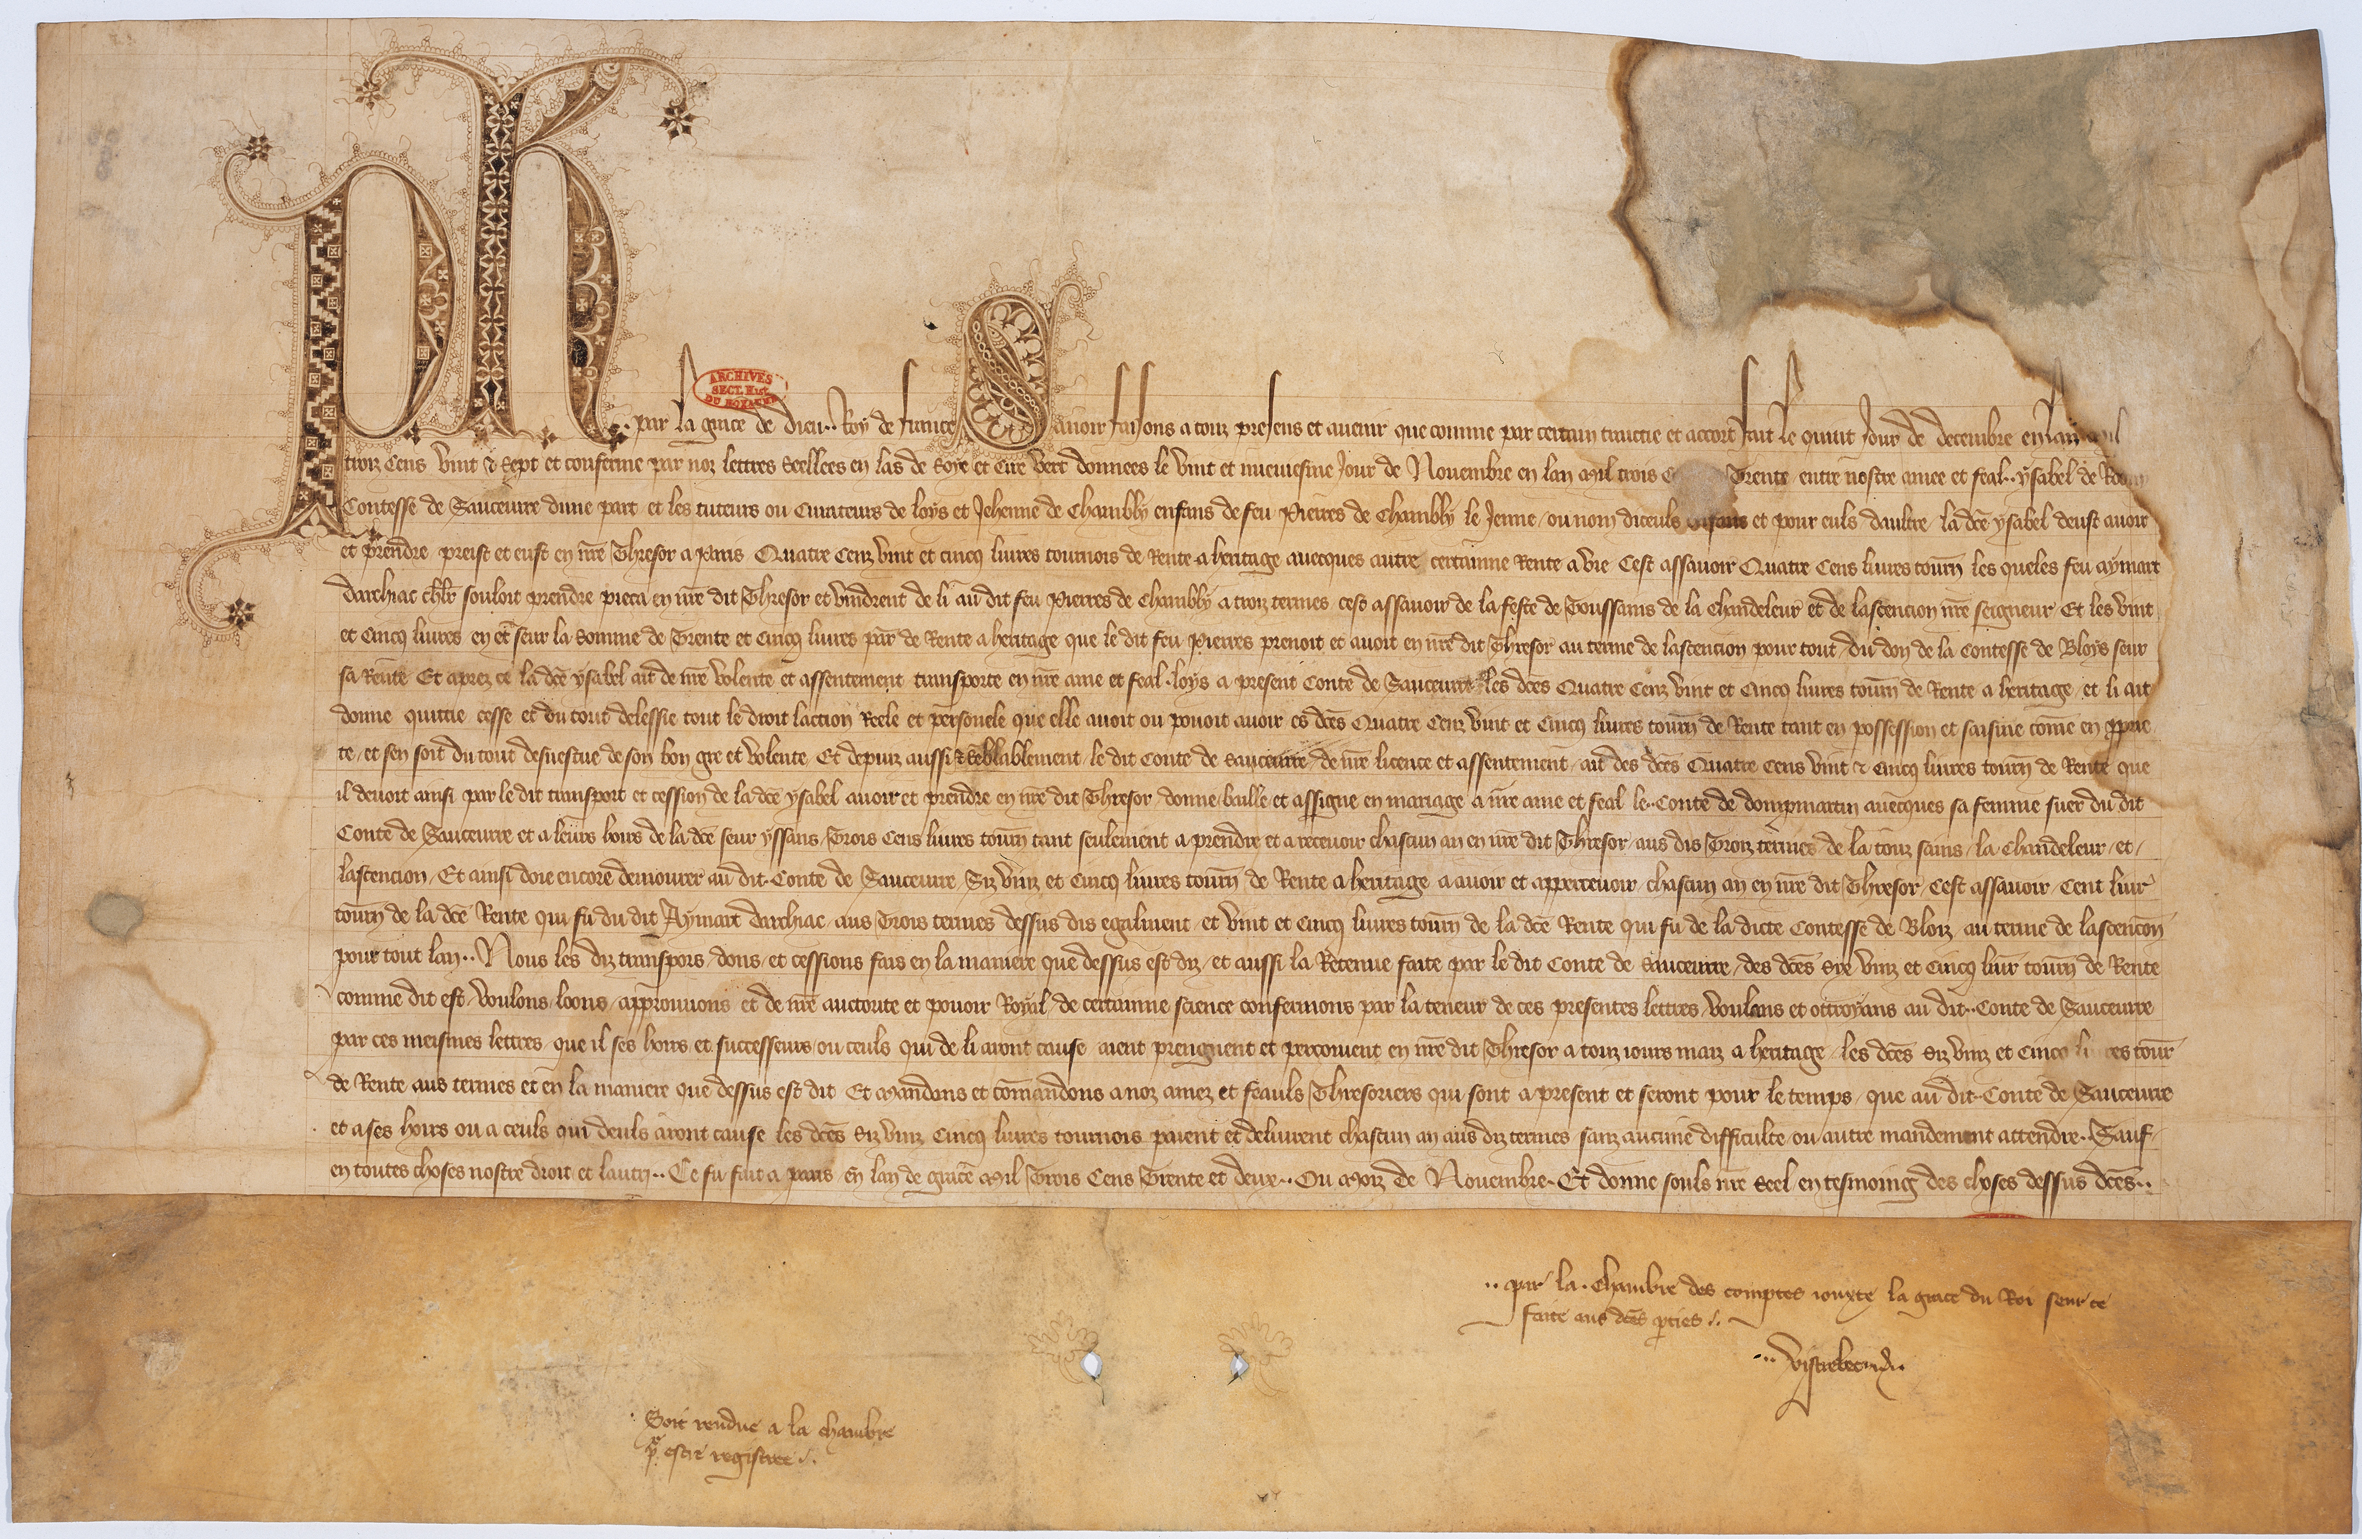 PR
ARCHIVES
SECT. HIST.
DU ROYAUME
par la grace de dieu Roy de France Savoir faisons a touz presens et avenir que comme par certain traictie et accort fait le quint Jour de decembre en lan mil
troiz Cens vint & Sept et conferme par noz lettres Seellees en las de Soye et Cire vert donnees le vint et nuevuiesme Jour de Novembre en lan Mil trois Trente entre nostre amee et feal ysabel de
Contesse de Sanceurre dune part et les tuteurs ou Curateurs de loys et Jehenne de Chambly enfans de feu Pierres de Chambly le Jenne ou nom diceuls enfans et pour euls daultre la dce ysabel deust avoir
et prendre preist et eust en nre Thresor a Paris Quatre Cenz vint et cincq livres tournois de Rente a heritage avecques autre certainne Rente a vie Cest assavoir Quatre Cens livres tourn les queles feu aymart
darchiac chlr souloit prendre pieca en nre dit Thresor et vindrent de li au dit feu Pierres de Chambly a troiz termes cest assavoir de la feste de Toussains de la Chandeleur et de lascencion nre seigneur Et les vint
et Cincq livres en et seur la Somme de Trente et Cincq livres par de Rente a heritage que le dit feu Pierres prenoit et avoit en nre dit Thresor au terme de lascencion pour tout du don de la Contesse de Bloys seur
sa Rente Et aprez ce la dce ysabel ait de nre volente et assentement transporte en nre ame et feal loys a present Conte de Sanceurre les dces Quatre Cenz vint et Cincq livres tourn de Rente a heritage et li ait
donne quittie cesse et du tout delessie tout le droit laction Reele et personele que elle avoit ou povoit avoir es dces Quatre Cenz vint et Cincq livres tourn de Rente tant en possession et saisine come en pprie
te et sen soit du tout desvestue de son bon gre et volente Et depuiz aussi & semblablement le dit Conte de Sanceurre de nre licence et assentement ait des dces Quatre Cens vint & Cincq livres tourn de Rente que
il devoit ainsi par le dit transport et cession de la dce ysabel avoir et prendre en nre dit Thresor donne baille et assigne en mariage a nre ame et feal le Conte de dompmartin avecques sa femme suer du dit
Conte de Sanceurre et a leurs hoirs de la dce seur yssans Trois Cens livres tourn tant seulement a prendre et a recevoir chascun an en nre dit Thresor aus dis Troiz termes de la touz sains la Chandeleur et
lascencion Et ainsi doie encore demourer au dit Conte de Sanceurre Siz vinz et Cincq livres tourn de Rente a heritage a avoir et appercevoir chascun an en nre dit Thresor Cest assavoir Cent livr
tourn de la dce Rente qui fu du dit Aymart Darchiac aus Trois termes dessus dis egalment et vint et Cincq livres tourn de la dce Rente qui fu de la dicte Contesse de Bloiz au terme de lascencon
pour tout lan Nous les diz transpors dons et cessions fais en la maniere que dessus est diz et aussi la Retenue faite par le dit Conte de Sanceurre des dces Sye vinz et Cincq livr tourn de Rente
comme dit est voulons loons approuvons et de nre auctorite et povoir Royal de certainne science confermons par la teneur de ces presentes lettres voulans et ottroyans au dit Conte de Sanceurre
par ces meismes lettres que il ses hoirs et successeurs ou ceuls qui de li aront cause aient preignent et percoivent en nre dit Thresor a touz iours maiz a heritage les dces Siz vinz et Cincq livres tour
de Rente aus termes et en la maniere que dessus est dit Et Mandons et comandons a noz amez et feauls Thresoriers qui sont a present et seront pour le temps que au dit Conte de Sanceurre
et a ses hoirs ou a ceuls qui deuls aront cause les dces Siz vinz Cincq livres tournois paient et delivrent chascun an aus diz termes sanz aucune difficulte ou autre mandement attendre Sauf
en toutes choses nostre droit et lautri Ce fu fait a paris En lan de grace Mil Trois Cens Trente et deux Ou Moiz De Novembre Et donne souls nre Seel en tesmoing des choses dessus dces
par la Chambre des comptes iouxte la grace du Roi seur ce
faite aus dces pties
Soit rendue a la chambre
pr estre registree